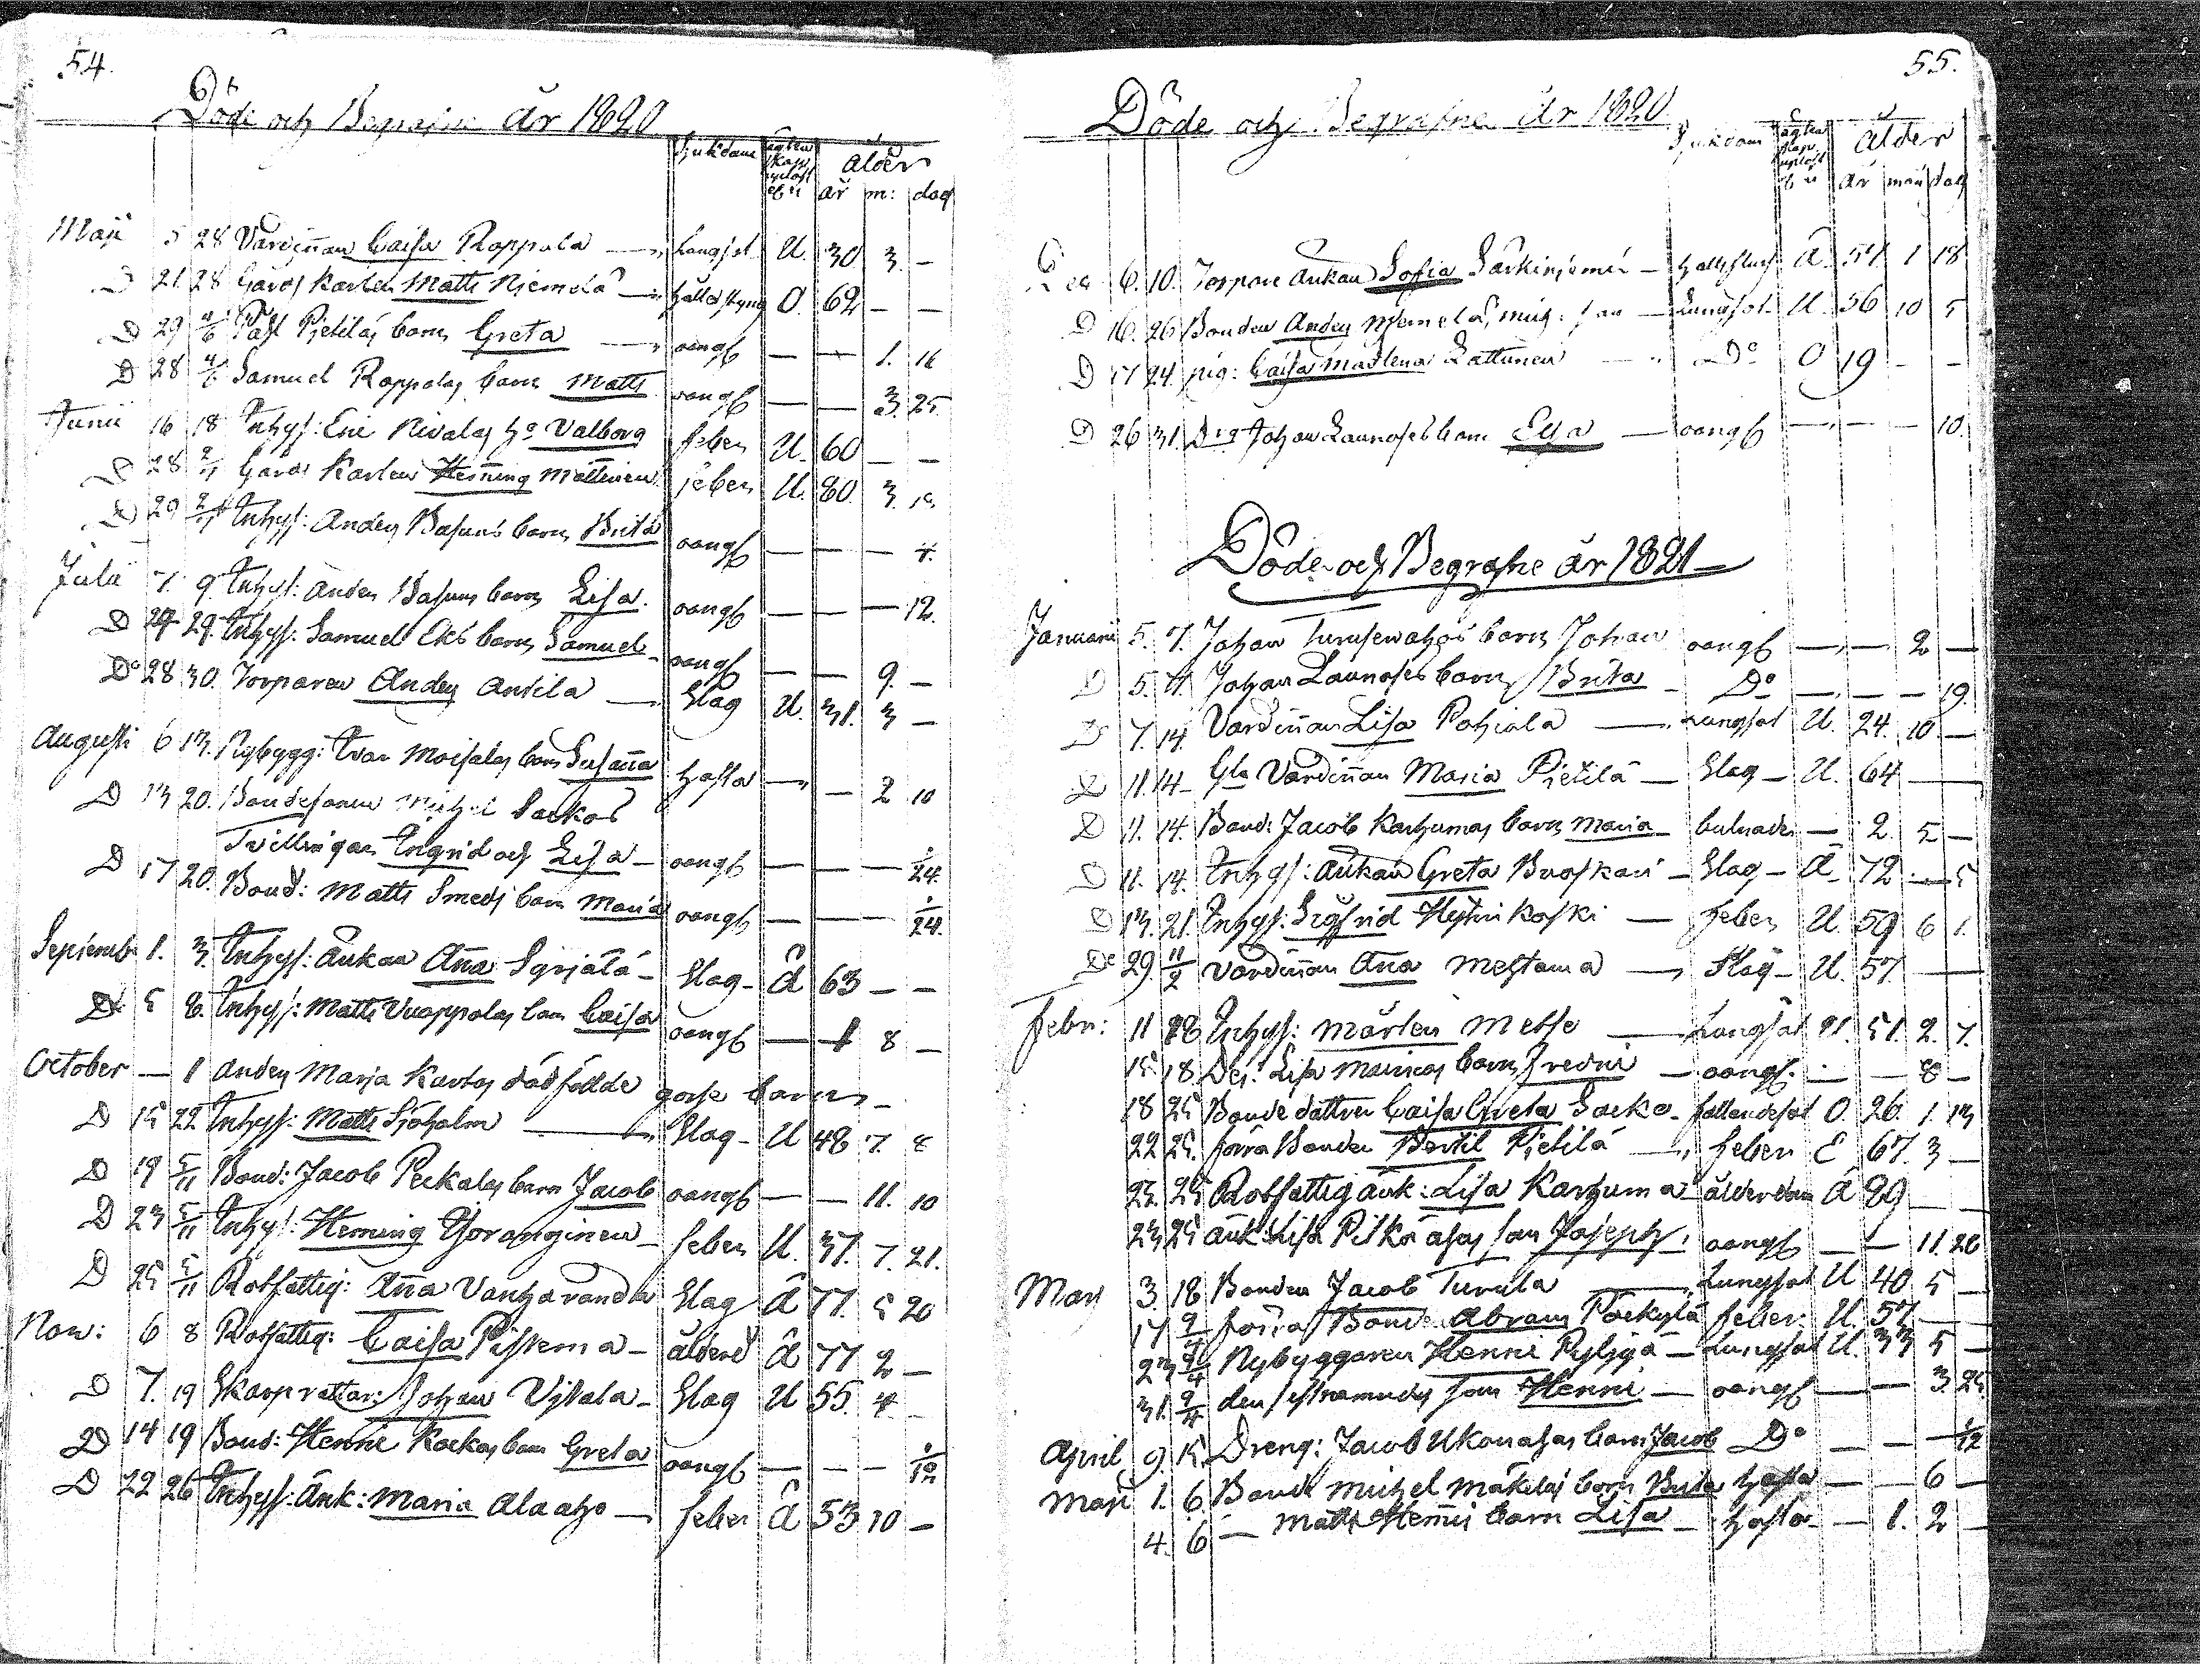 54.
Döde och Begrafne år 1820
Sjukdom ägtenskap uplöst ålder
af u år m: dag
Maji 5 28 Värdinnan Caisa Roppala — Lungsot U. 30 3. —
D 21 28 Gårds Karlen Matts Niemelä — Håll o styng O. 62 — —
D 29 4/6 Past Pietiläs barn Greta — oangf — — 1. 16
D 28 4/6 Samuel Roppalas barn Matts oangf — — 3. 25.
Junii 16 18 Inhys: Eric Nivalas ho Valborg feber U. 60 — —
D 28 2/7 Gårds Karlen Henning Mattinen feber U. 80. 3.
D 29 2/7 Inhys: Anders Basuns barn Brita oangf — — — 4.
Julii 7. 9. Inhys: Anders Basuns barn Lisa. oangf — — — 12.
D 27 29. Inhys: Samuel Eks barn Samuel oangf — — 9. —
Do 28 30. Torparen Anders Antila — Slag U. 31. 3 —
Augusti 6 13. Nybygg: Ivar Moisalas barn Susanna hosta — — 2 10
D 13 20. Bondesonen Michel Sackos
Tvillingar Ingrid och Lisa — oangf — — — 1/24.
D 17 20. Bond: Matts Smeds barn Maria oangf — — — 1/24.
Septemb: 1. 3. Inhys: Änkan Anna Syrjälä — Slag — Ä 63 — —
D 5 8. Inhys: Matts Vuoppolas barn Caisa oangf — 1 8 —
October — 1 Anders Marja Karhos dödfödde gosse barn —
D 15 22 Inhys: Matts Sjöholm — Slag — U 48 7. 8
D 19 5/11 Bond: Jacob Peckalas barn Jacob oangf — — 11. 10
D 23 5/11 Inhys: Henning Goranginen — feber U. 37. 7. 21.
D 25 5/11 Rotfattig: Anna Vanhavanda Slag Ä 77. 5 20
Nov: 6 8 Rotfattig: Caisa Pistema — ålderd Ä 77 2 —
D 7. 19 Skarprättar: Johan Vistala — Slag U 55. 4
D 14 19 Bond: Henric Kockos barn Greta oangf — — — 1/12
D 22 26 Inhys: Änk: Maria Alaaho — feber Ä 53 10 —
55.
Döde och Begrafne år 1820
Sjukdom ägtenskap uplöst ålder
af u år mån dag
Dec 6. 10. Torpare änkan Sofia Särkiniemi — Ä 54 1 18
D 16. 26 Bonden Anders Niemelä, — Lungsot U. 56 10 5
D 17 24. pig: Caisa Madlena Lattunen — Do O 19 — —
D 26 31. Drg Johan Launoses barn Elsa — oangf — — — 10.
Döde och Begrafne år 1821
Januari 5. 7. Johan barn Johan oangf — — 2 —
D 5. 11 Johan Launoses barn Brita — Do — — — 19.
D 7. 14. Värdinnan Lisa Pohiala — Lungsot U. 24. 10 —
D 11. 14. Gla Värdinnan Maria Pietilä — Slag — U. 64 —
D 11. 14. Bond: Jacob Karhumas barn Maria — bulnader — 2. 5 —
D 11. 14. Inhys: änkan Greta Buoskari — Slag — Ä. 72 — 5
D 13. 21. Inhys: Sigfrid Hyhnikoski — feber U. 59 6 1.
Do 29. 11/2 Värdinnan Anna Mestama — Slag — U. 57. —
Febr: 11 18 Inhys: Mårten Metse — Lungsot U. 51. 2. 7.
15 18 Dej: Lisa Mainas barn Fredric — oangf. — — 8 —
18 25 Bonde dottren Caisa Greta Sacko — fallandesot O. 26. 1. 13
22 25. förra Bonden Bertil Pietilä — feber E 67. 3 —
23. 25 Rotfattig änk: Lisa Karhuma ålderdom Ä 89 — —
23 25 änk: Lisa Pitkäahos son Joseph, oangf — — 11. 26
Mars 3. 18 Bonden Jacob Turula — Lungsot U 40. 5 —
17 9/4 förra Bonden Abram Pockylä feber. U. 57 —
23 9/4 Nybyggaren Henric Pyhjä — Lungsot U. 33 5 —
31. 9/4 den sistnämndes son Henric — oangf — — 3. 25
April 9. 15. Dreng: Jacob Ukonahos barn Jacob Do — — — 1/12
Maji 1. 6. Bond Michel Mäkelas barn Brita hosta — — 6 —
4. 6 — Matts Hennis barn Lisa — hosta — 1. 2 —